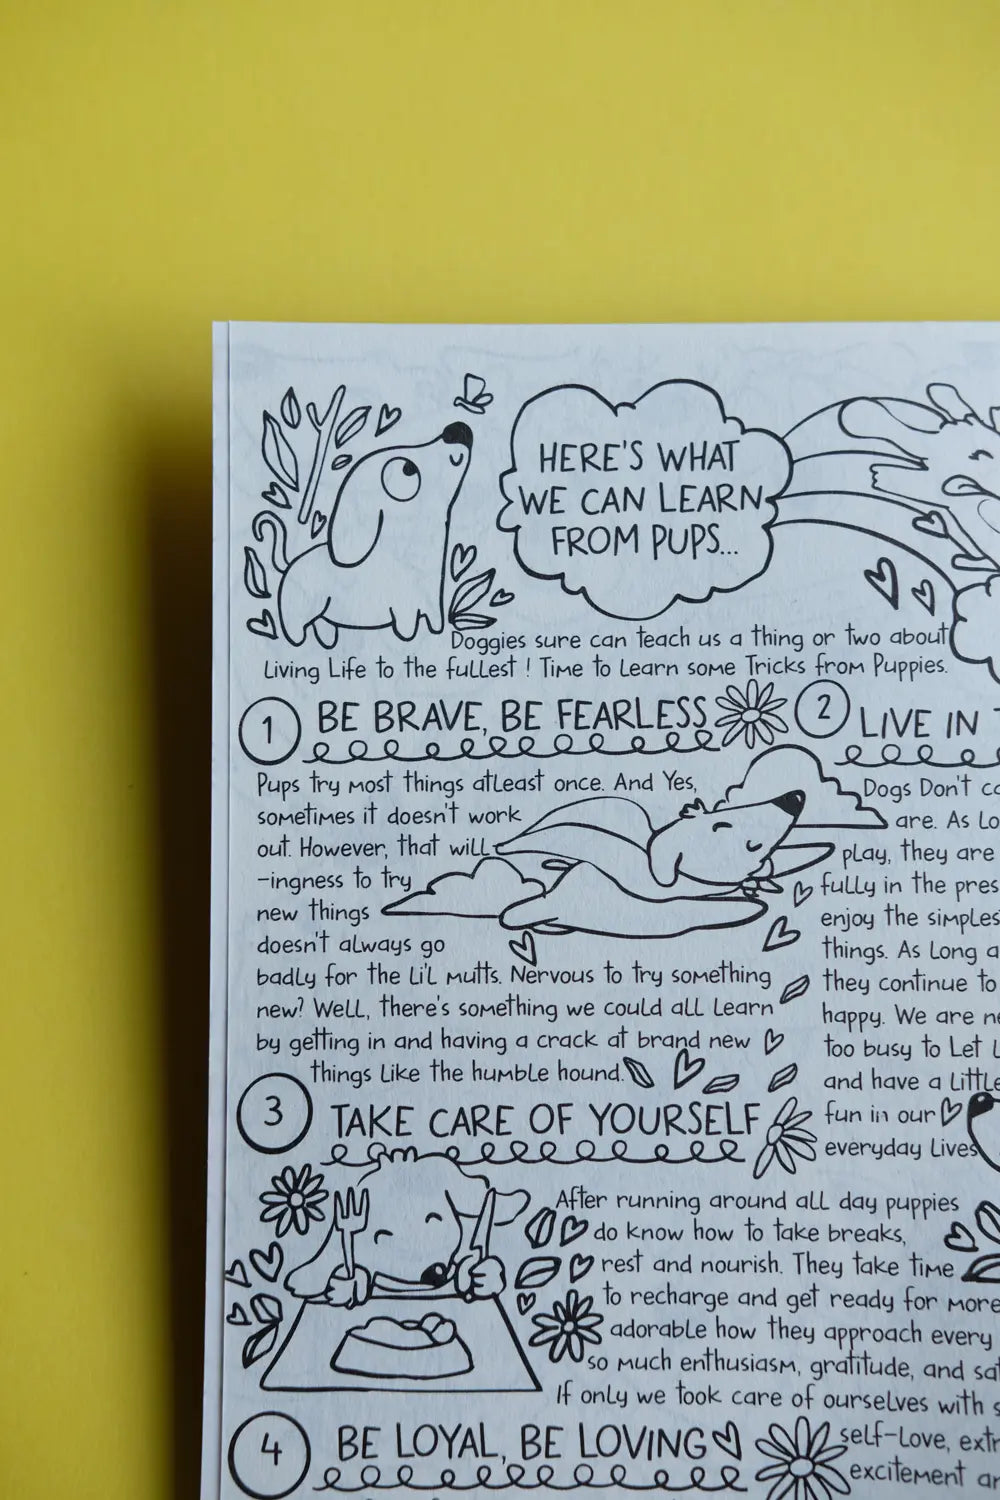 HERE'S WHAT
WE CAN LEARN
FROM PUPS...
Doggies sure can teach us a thing or two about
Living Life to the fullest ! Time to Learn some Tricks from Puppies.
1 BE BRAVE, BE FEARLESS
Pups try most things atLeast once. And Yes,
sometimes it doesn't work
out. However, that will
-ingness to try
new things
doesn't always go
badly for the Li'l mutts. Nervous to try something
new? Well, there's something we could all Learn
by getting in and having a crack at brand new
things Like the humble hound.
2 LIVE IN
Dogs Don't
are. As
play, they are
fully in the
enjoy the
things. As Long
they continue to
happy. We are
too busy to Let
and have a Little
fun in our
everyday Lives
3 TAKE CARE OF YOURSELF
After running around all day puppies
do know how to take breaks,
rest and nourish. They take time
to recharge and get ready for more
adorable how they approach every
so much enthusiasm, gratitude, and
If only we took care of ourselves with
self-Love,
excitement
4 BE LOYAL, BE LOVING